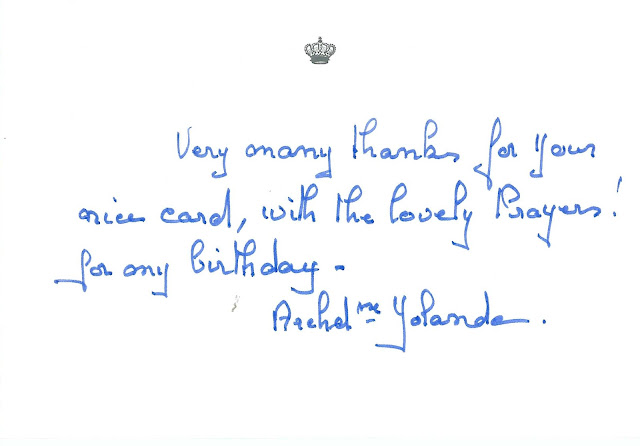 Very many thanks for your
nice card, with the lovely Prayers!
for my birthday -
Archdme Yolande.